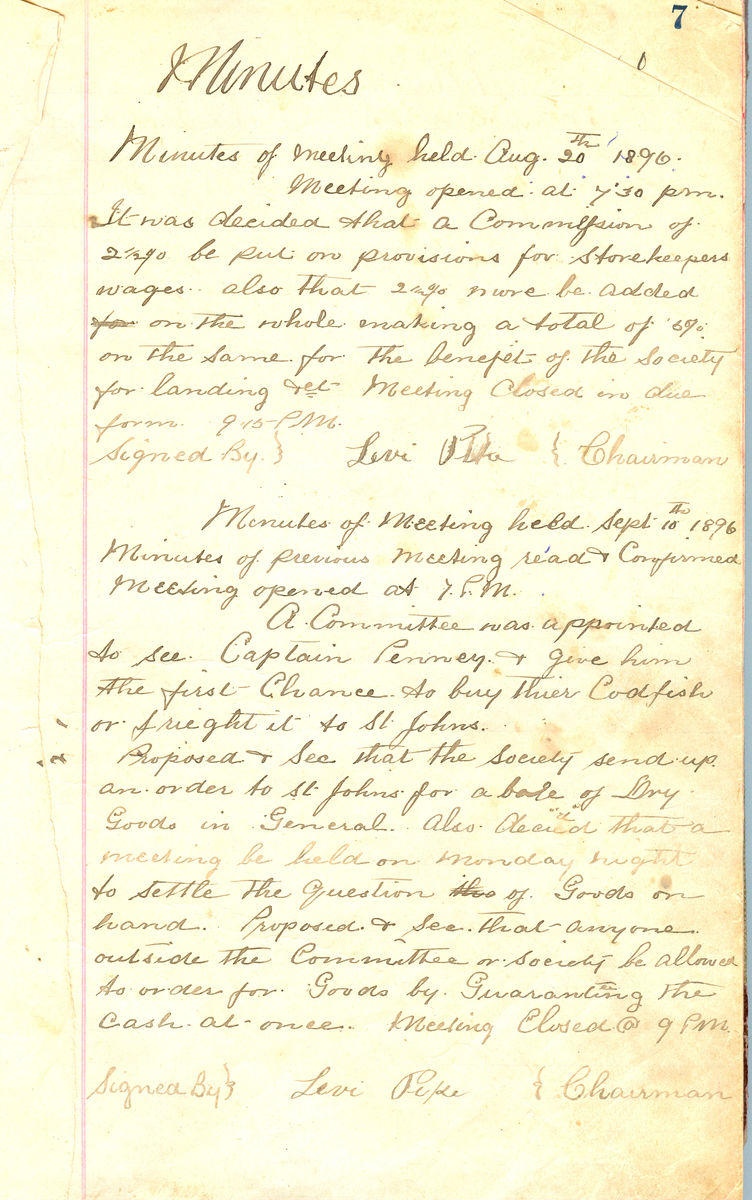 7
Minutes
Minutes of meeting held Aug. 20th 1896.
Meeting opened at 7.30 pm.
It was decided that a Commission of
2½% be put on provisions for Storekeepers
wages. also that 2½% more be added
for on the whole making a total of 5%
on the same for the benefit of the Society
for landing &ct Meeting Closed in due
form. 9.15 P.M.
Signed By } Levi Pike { Chairman
Minutes of Meeting held Sept 10th 1896
Minutes of previous Meeting read & Confirmed
Meeting opened at 7. P.M.
A Committee was appointed
to see Captain Penney. & give him
the first Chance to buy thier Codfish
or frieght it to St Johns.
Proposed & Sec that the Society send up
an order to St Johns for a bale of Dry
Goods in General. Also decied that a
meeting be held on Monday night
to settle the Question the of Goods on
hand. Proposed & Sec. that anyone
outside the Committee or society be allowed
to order for Goods by Guaranting the
Cash at once. Meeting Closed @ 9 P.M.
Signed By } Levi Pike { Chairman